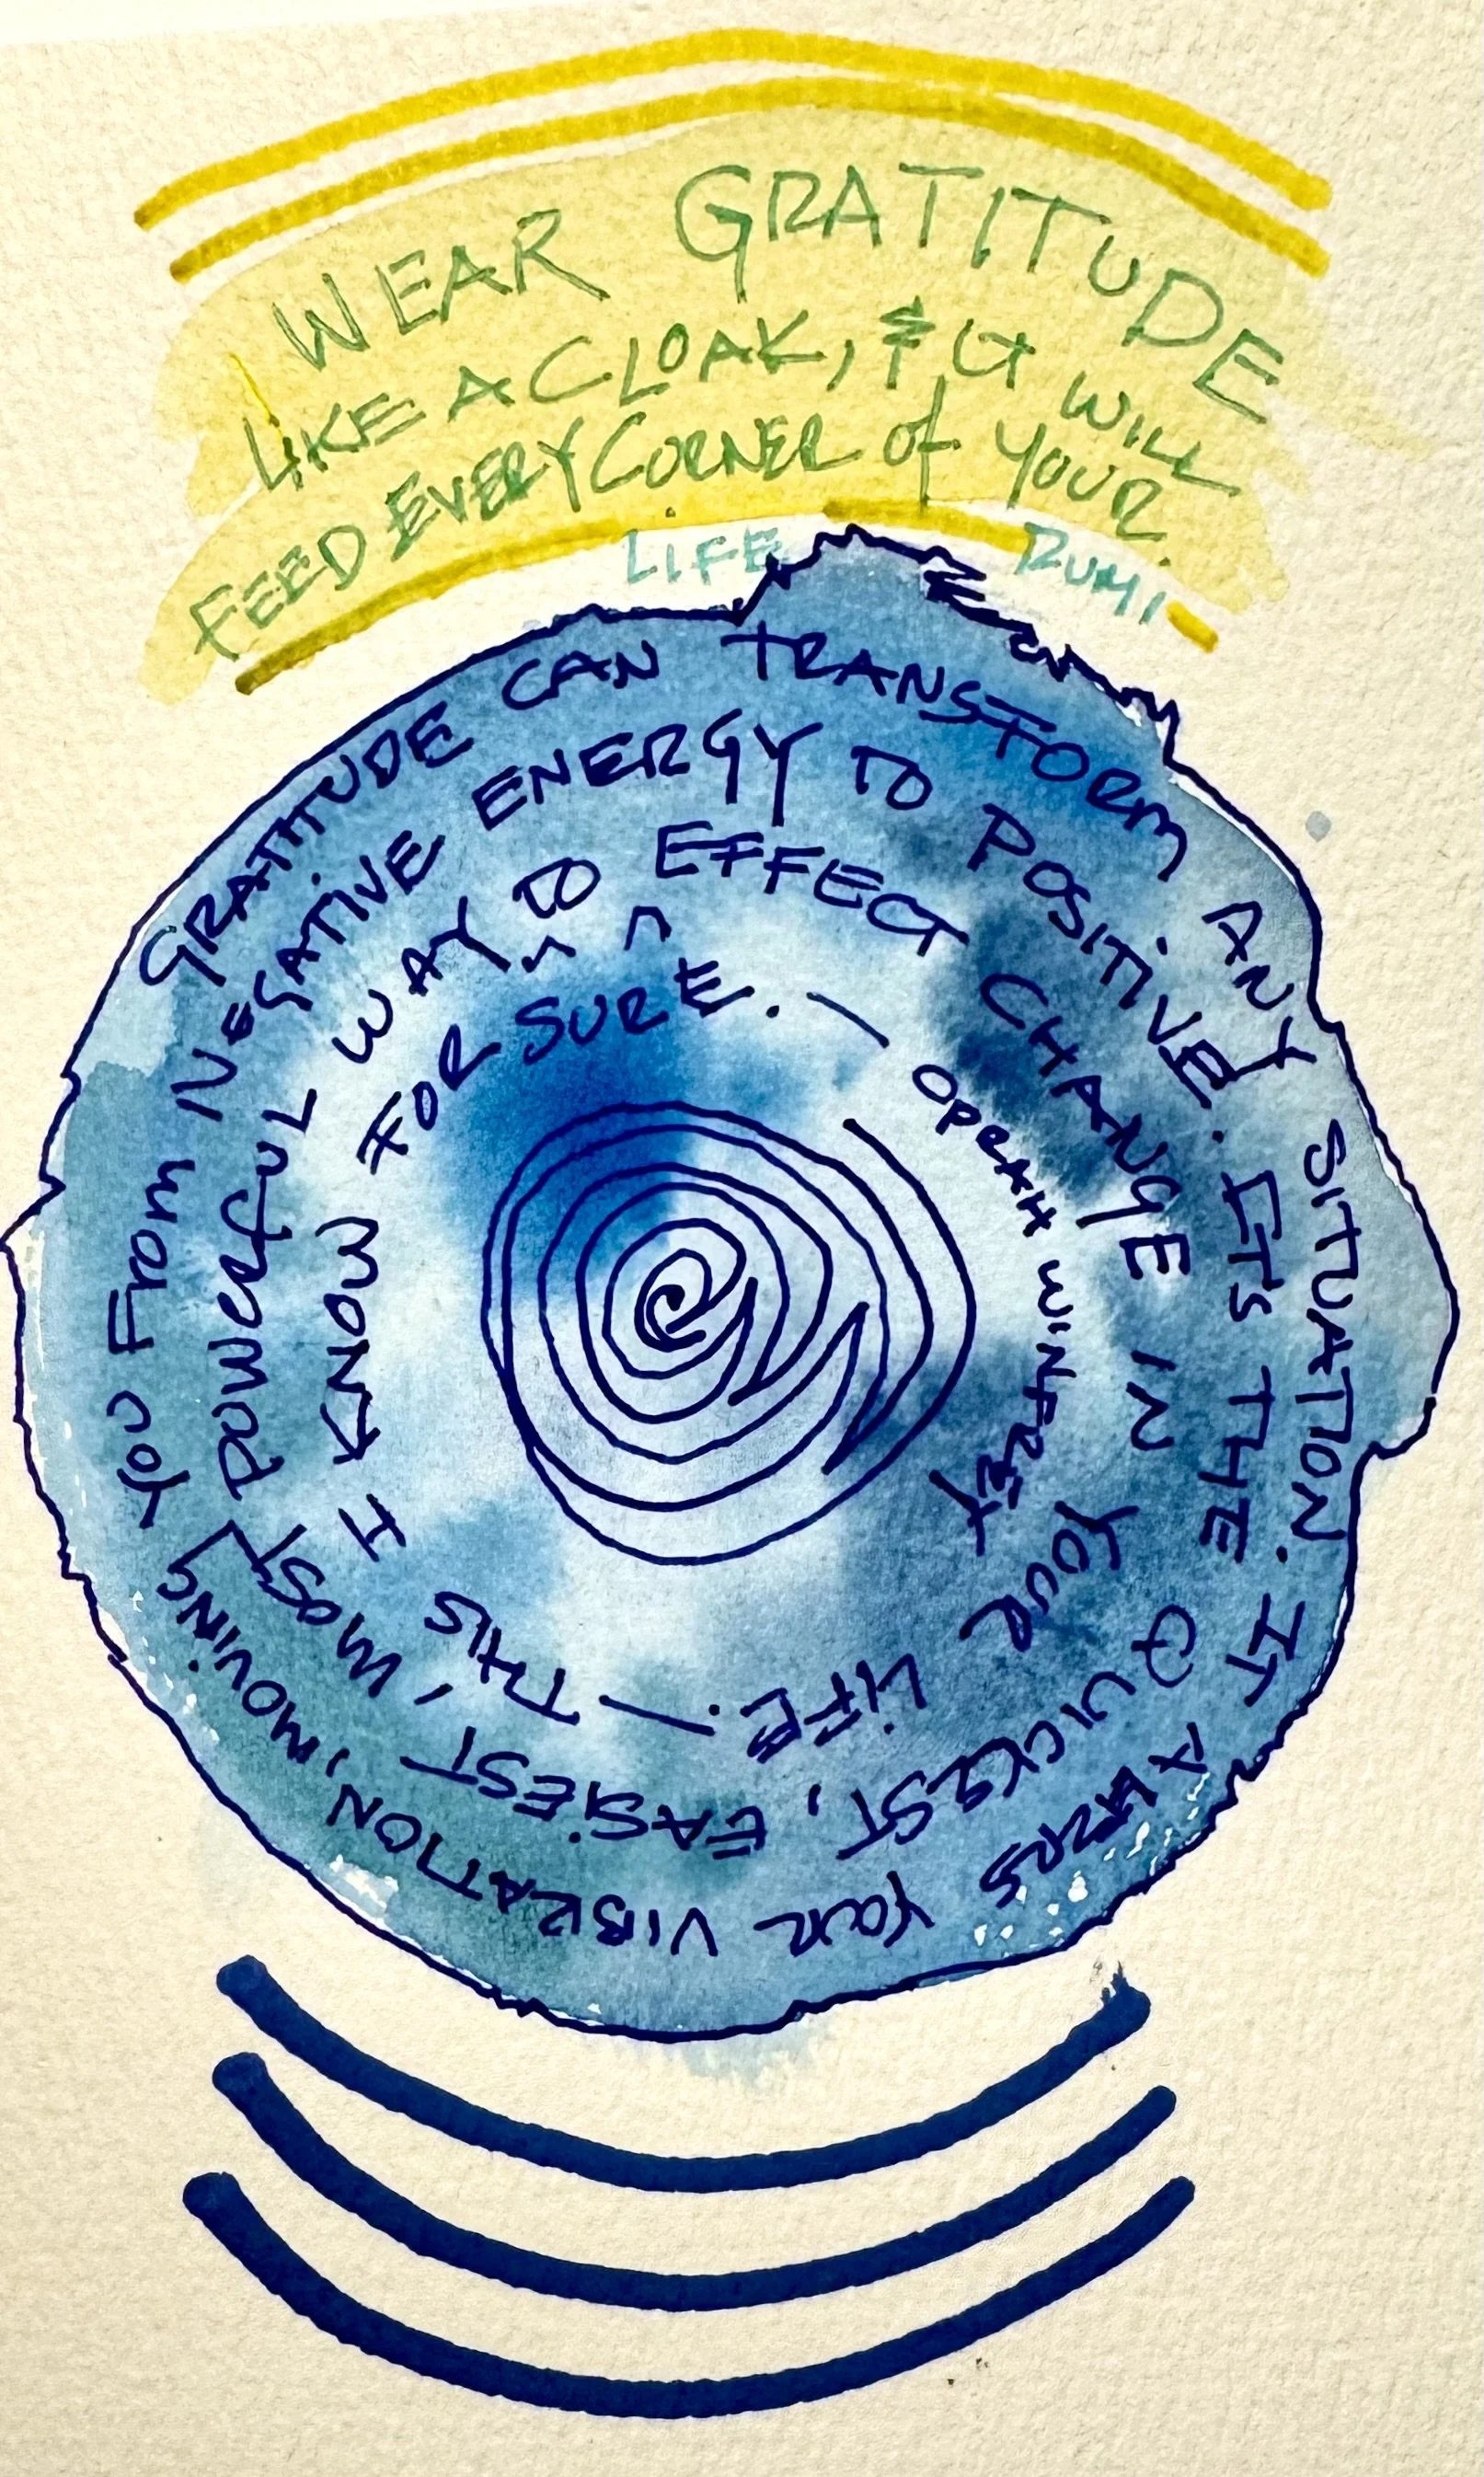 WEAR GRATITUDE
LIKE A CLOAK, & IT WILL
FEED EVERY CORNER of YOUR
LIFE. RUMI
GRATITUDE CAN TRANSFORM ANY SITUATION. IT YOUR VIBRATION, MOVING YOU FROM
NEGATIVE ENERGY TO POSITIVE. IT'S THE QUICKEST, EASIEST, MOST POWERFUL
WAY TO EFFECT CHANGE IN YOUR LIFE. — THIS I KNOW
FOR SURE. — OPRAH WINFREY